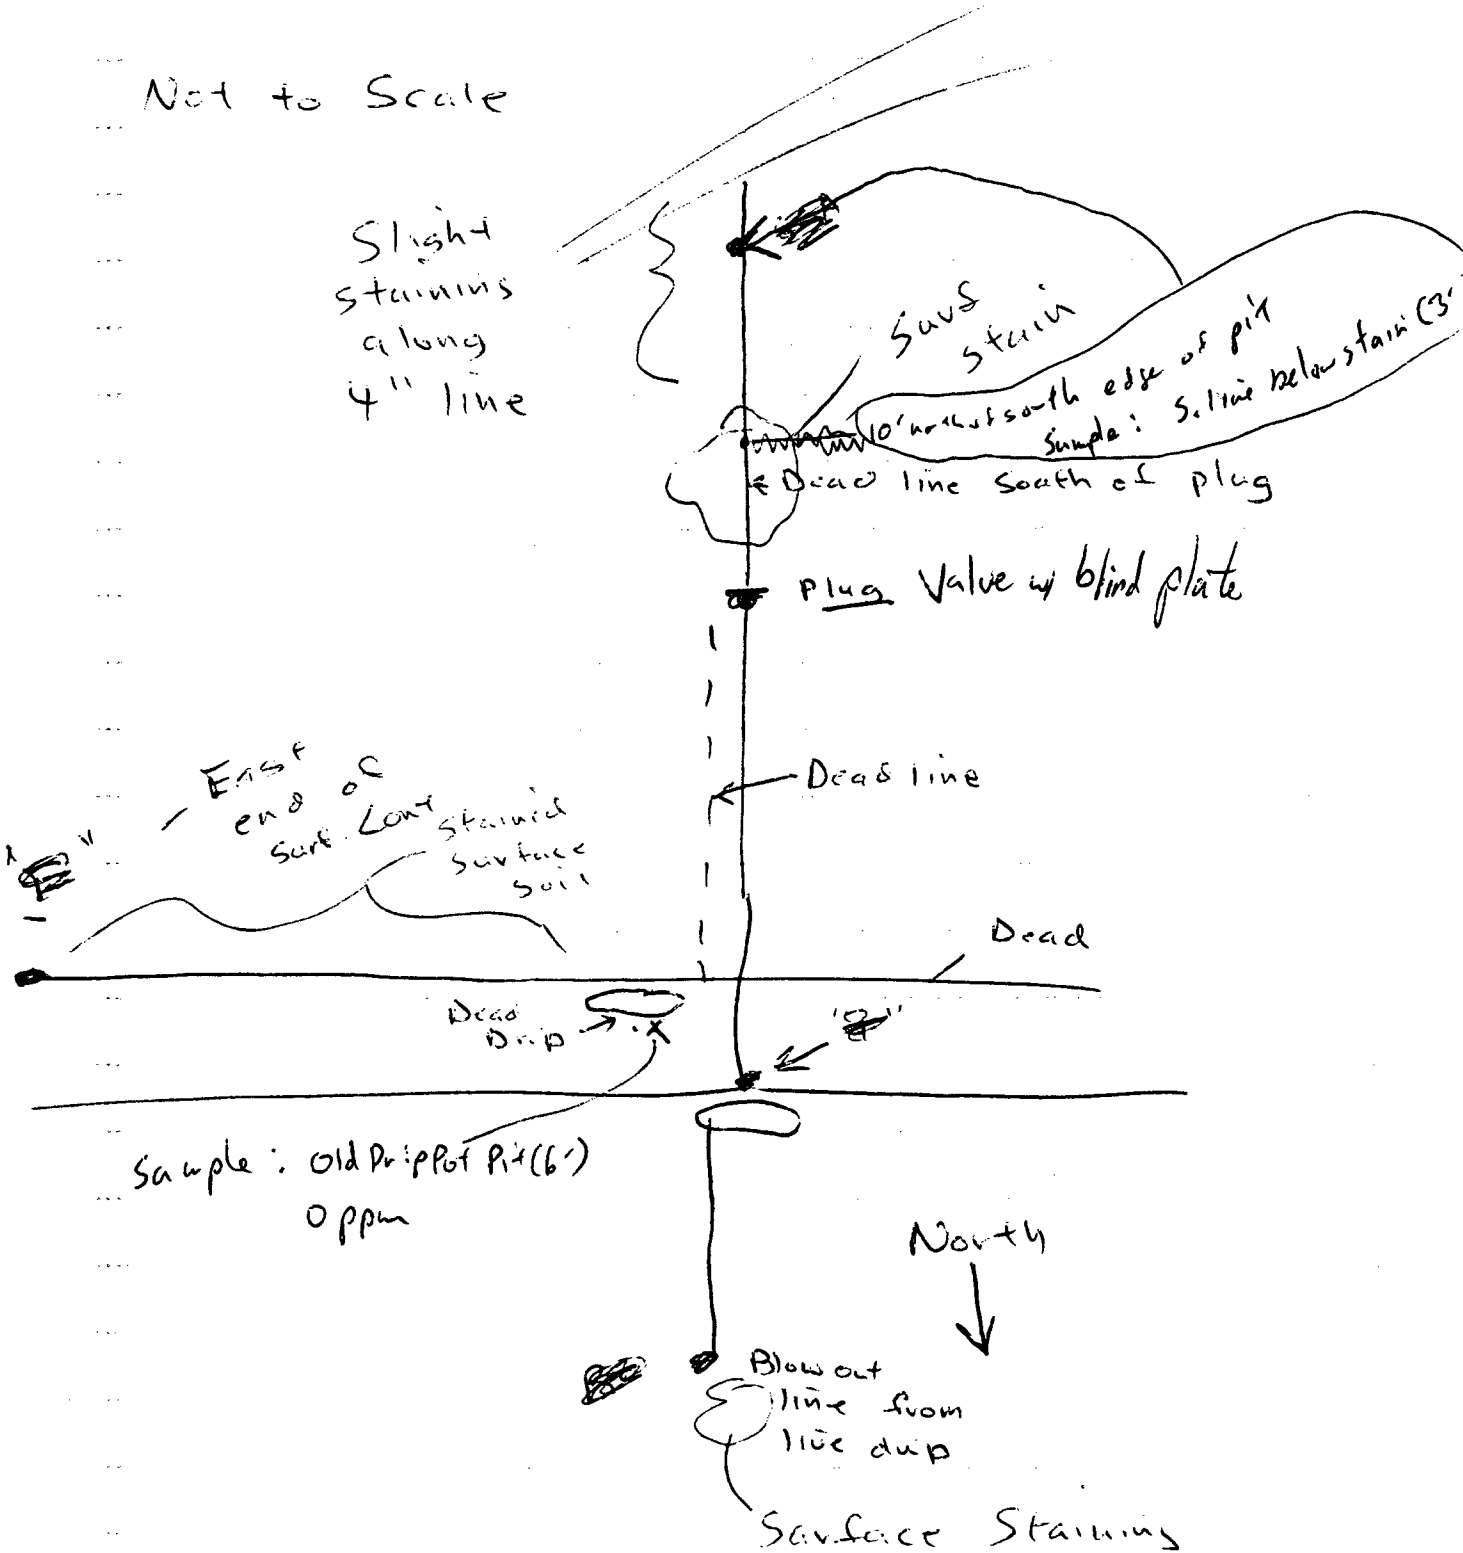 Not to Scale
Slight
staining
along
4" line
Surf
stain
10' north of south edge of pit
Sample: S. line below stain (3'
Dead line South of plug
Plug Valve w/ blind plate
East
end of
surf. Cont
stained
surface
soil
Dead line
Dead
Dead
Drip
Sample: Old Drip Pot Pit (6')
0 ppm
North
Blow out
line from
line drip
Surface Staining